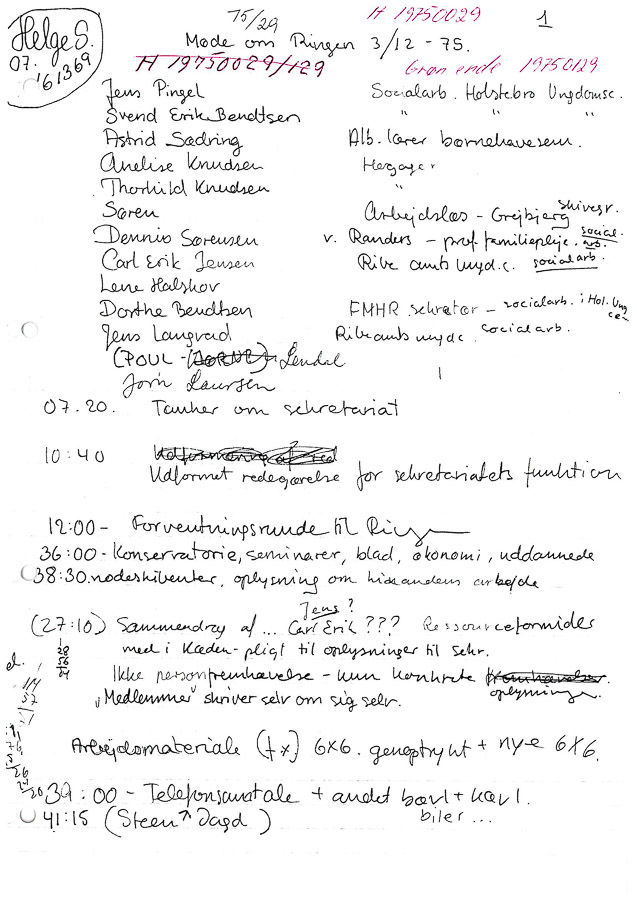 75/29 H 19750029 1
Helge S. Møde om Ringen 3/12 - 75.
07. 161369
H 19750029/129 Grøn ende 19750129
Jens Pingel Socialarb. Holstebro Ungdomsc.
Svend Erik Bendtsen " " "
Astrid Sædring Alb. lærer børnehavesem.
Anelise Knudsen
Thorkild Knudsen "
Søren Arbejdsløs - Grejbjerg
Dennis Sørensen v. Randers - prof. familiepleje. social. arb.
Carl Erik Jensen Ribe amts ungd.c. socialarb.
Lene Halskov
Dorthe Bendtsen FMHR sekretær - socialarb. i Hol. Ung
Jens Langvad Ribe amts ungdc. socialarb.
(POUL - Lendal
Jørn Laursen
07.20. Tanker om sekretariat
10:40
Udformet redegørelse for sekretariatets funktion
12:00 - Forventningsrunde til Ringen
36:00 - Konservatorie, seminarer, blad, økonomi, uddannede
38:30. nodeskribenter, oplysning om hinandens arbejde
Jens?
(27:10) Sammendrag af ... Carl Erik ??? Ressourceformidler
med i Kæden - pligt til oplysninger til sekr.
Ikke personfremhævelse - kun konkrete
oplysninger.
"Medlemmer" skriver selv om sig selv.
Arbejdsmateriale (fx) 6x6. genoptrykt + nye 6x6.
39:00 - Telefonsamtale + andet bavl + kavl.
41:15 (Steen Jagd) biler ...